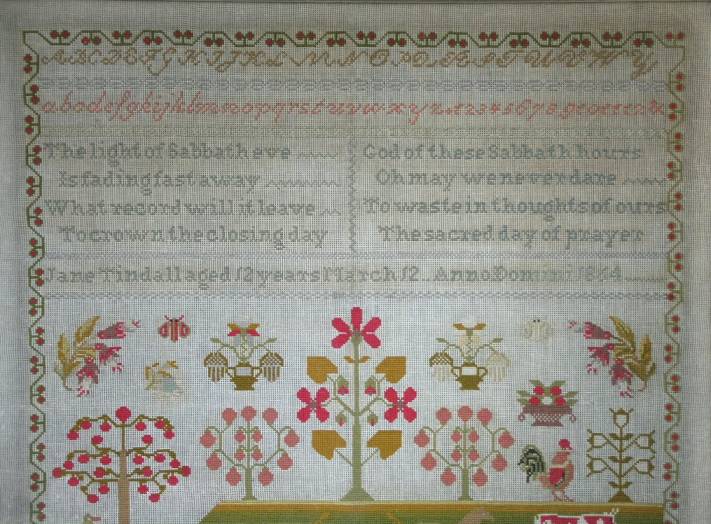 A B C D E F G H I J K L M N O P Q R S T U V W Y
a b c d e f g h i j k l m n o p q r s t u v w x y z 1 2 3 4 5 6 7 8 9
The light of Sabbath eve
Is fading fast away
What record will it leave
To crown the closing day
God of these Sabbath hours
Oh may we never dare
To waste in thoughts of ours
The sacred day of prayer
Jane Tindall aged 12 years March 12 Anno Domini 1864